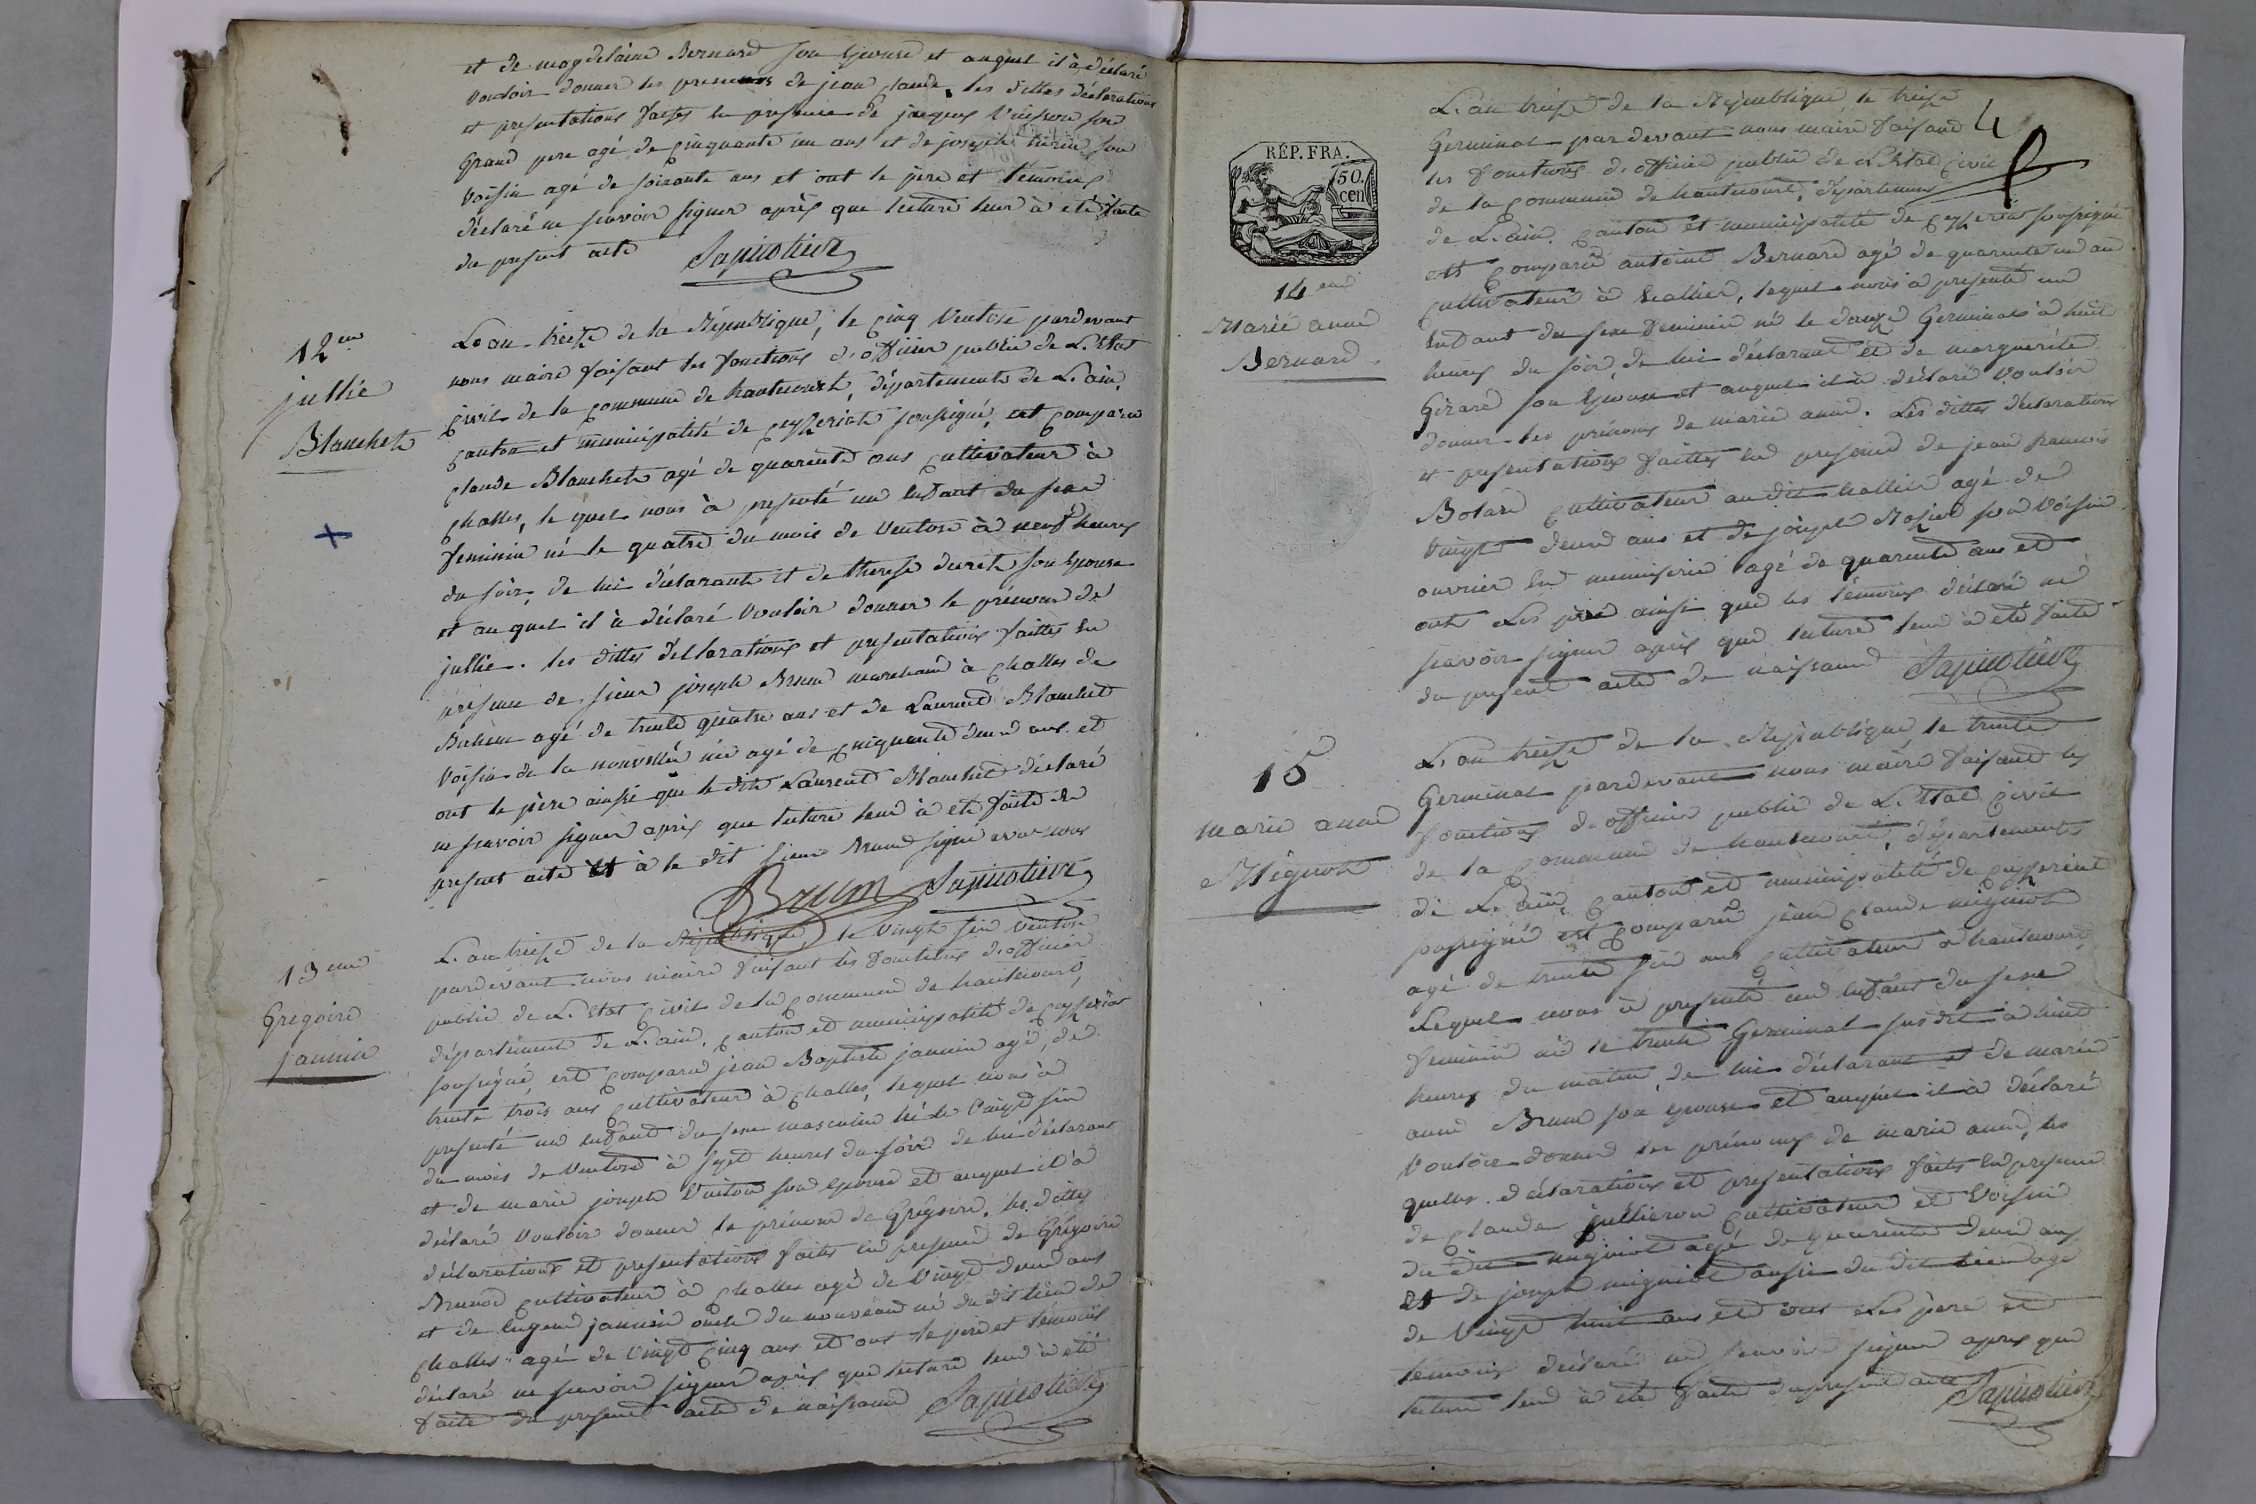 et de magdelaine Bernard son Epouse et auquel il à déclaré
vouloir donner les prenoms de jean claude, les dittes déclarations
et presentations faites en presence de jacques Vuisson son
Grand pere agé de cinquante un ans et de joseph son
voisin agé de soixante ans et ont le père et temoins
déclaré ne scavoir signer après que lecture leur à eté faite
du present acte
12eme
jullie
Blanchet
L'an treize de la République, le cinq Ventose pardevant
nous maire faisant les fonctions d'officier public de L'Etat
civil de la commune de hautecourt, département de L'ain,
canton et municipalité de ceyzeriat soussigné, est comparu
claude Blanchet agé de quarente ans cultivateur à
challes, lequel nous à presenté un enfant du sexe
feminin né le quatre du mois de Ventose à neuf heures
du soir, de lui déclarant et de therese son Epouse
et auquel il à déclaré vouloir donner le prenom de
jullie. les dittes déclarations et presentations faittes en
presence de sieur joseph Brun marchand à challes de
Boheme agé de trente quatre ans et de Laurent Blanchet
voisin de la nouvelle née agé de cinquante deux ans et
ont le père ainsi que le dit Laurent Blanchet déclaré
ne scavoir signer après que lecture leur à eté faite du
present acte et à le dit sieur Brun signé avec nous
Brun
13eme
Gregoire
jannin
L'an treize de la République, le vingt six ventose
pardevant nous maire faisant les fonctions d'officier
public de L'Etat civil de la commune de hautecourt,
département de L'ain, canton et municipalité de ceyzeriat
soussigné, est comparu jean Baptiste jannin agé de
trente trois ans cultivateur à challes, lequel nous à
presenté un enfant du sexe masculin né le vingt six
du mois de Ventose à sept heures du soir de lui déclarant
et de marie joseph son epouse et auquel il à
déclaré vouloir donner le prénom de Grégoire. les dittes
déclarations et presentations faites en presence de Grégoire
Brunod cultivateur à challes agé de vingt deux ans
et de Eugene jannin oncle du nouveau né du dit lieu de
challes agé de vingt cinq ans et ont le père et témoins
déclaré ne scavoir signer après que lecture leur à eté
faite du present acte de naissance
4
RÉP. FRA.
50.
cen
14eme
Marie anne
Bernard
L'an treize de la République, le treize
Germinal pardevant nous maire faisant
les fonctions d'officier public de L'Etat civil
de la commune de hautecourt, département
de L'ain, canton et municipalité de ceyzeriat soussigné
est comparu antoine Bernard agé de quarente un ans
cultivateur à hallier, lequel nous à presenté un
enfant du sexe feminin né le douze Germinal à huit
heures du soir, de lui déclarant et de marguerite
Girard son Epouse et auquel il à déclaré vouloir
donner les prénoms de marie anne. Les dittes déclarations
et presentations faittes en presence de jean francois
cultivateur au dit hallier agé de
vingt deux ans et de joseph son voisin
ouvrier en menuiserie agé de quarente ans et
ont Les père ainsi que les témoins déclaré ne
scavoir signer après que lecture leur à eté faite
du present acte de naissance
15
marie anne
Mignot
L'an treize de la République, le trente
Germinal pardevant nous maire faisant les
fonctions d'officier public de L'Etat civil
de la commune de hautecourt, département
de L'ain, canton et municipalité de ceyzeriat
soussigné est comparu jean claude mignot
agé de trente six ans cultivateur à hautecourt,
Lequel nous à presenté un enfant du sexe
feminin né le trente Germinal susdit à huit
heures du matin, de lui déclarant et de marie
anne Brun son epouse et auquel il à déclaré
vouloir donner les prénoms de marie anne, les
quelles déclarations et presentations faites en presence
de claude cultivateur et voisin
du dit mignot agé de quarente deux ans
et de joseph mignot aussi du dit lieu agé
de vingt huit ans et ont Les père et
temoins déclaré ne scavoir signer après que
lecture leur à eté faite du present acte